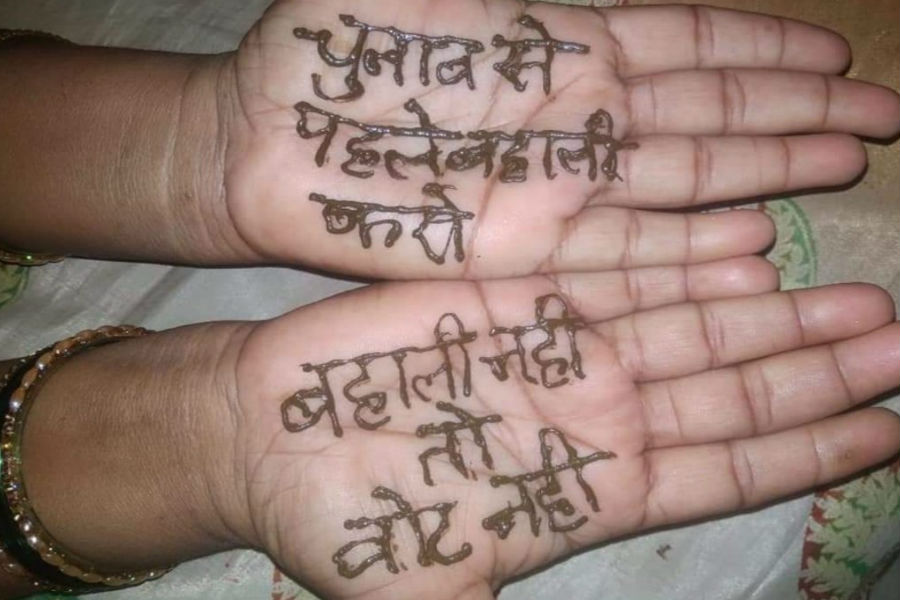 चुनाव से
पहले बहाली
करो
बहाली नही
तो
वोट नही